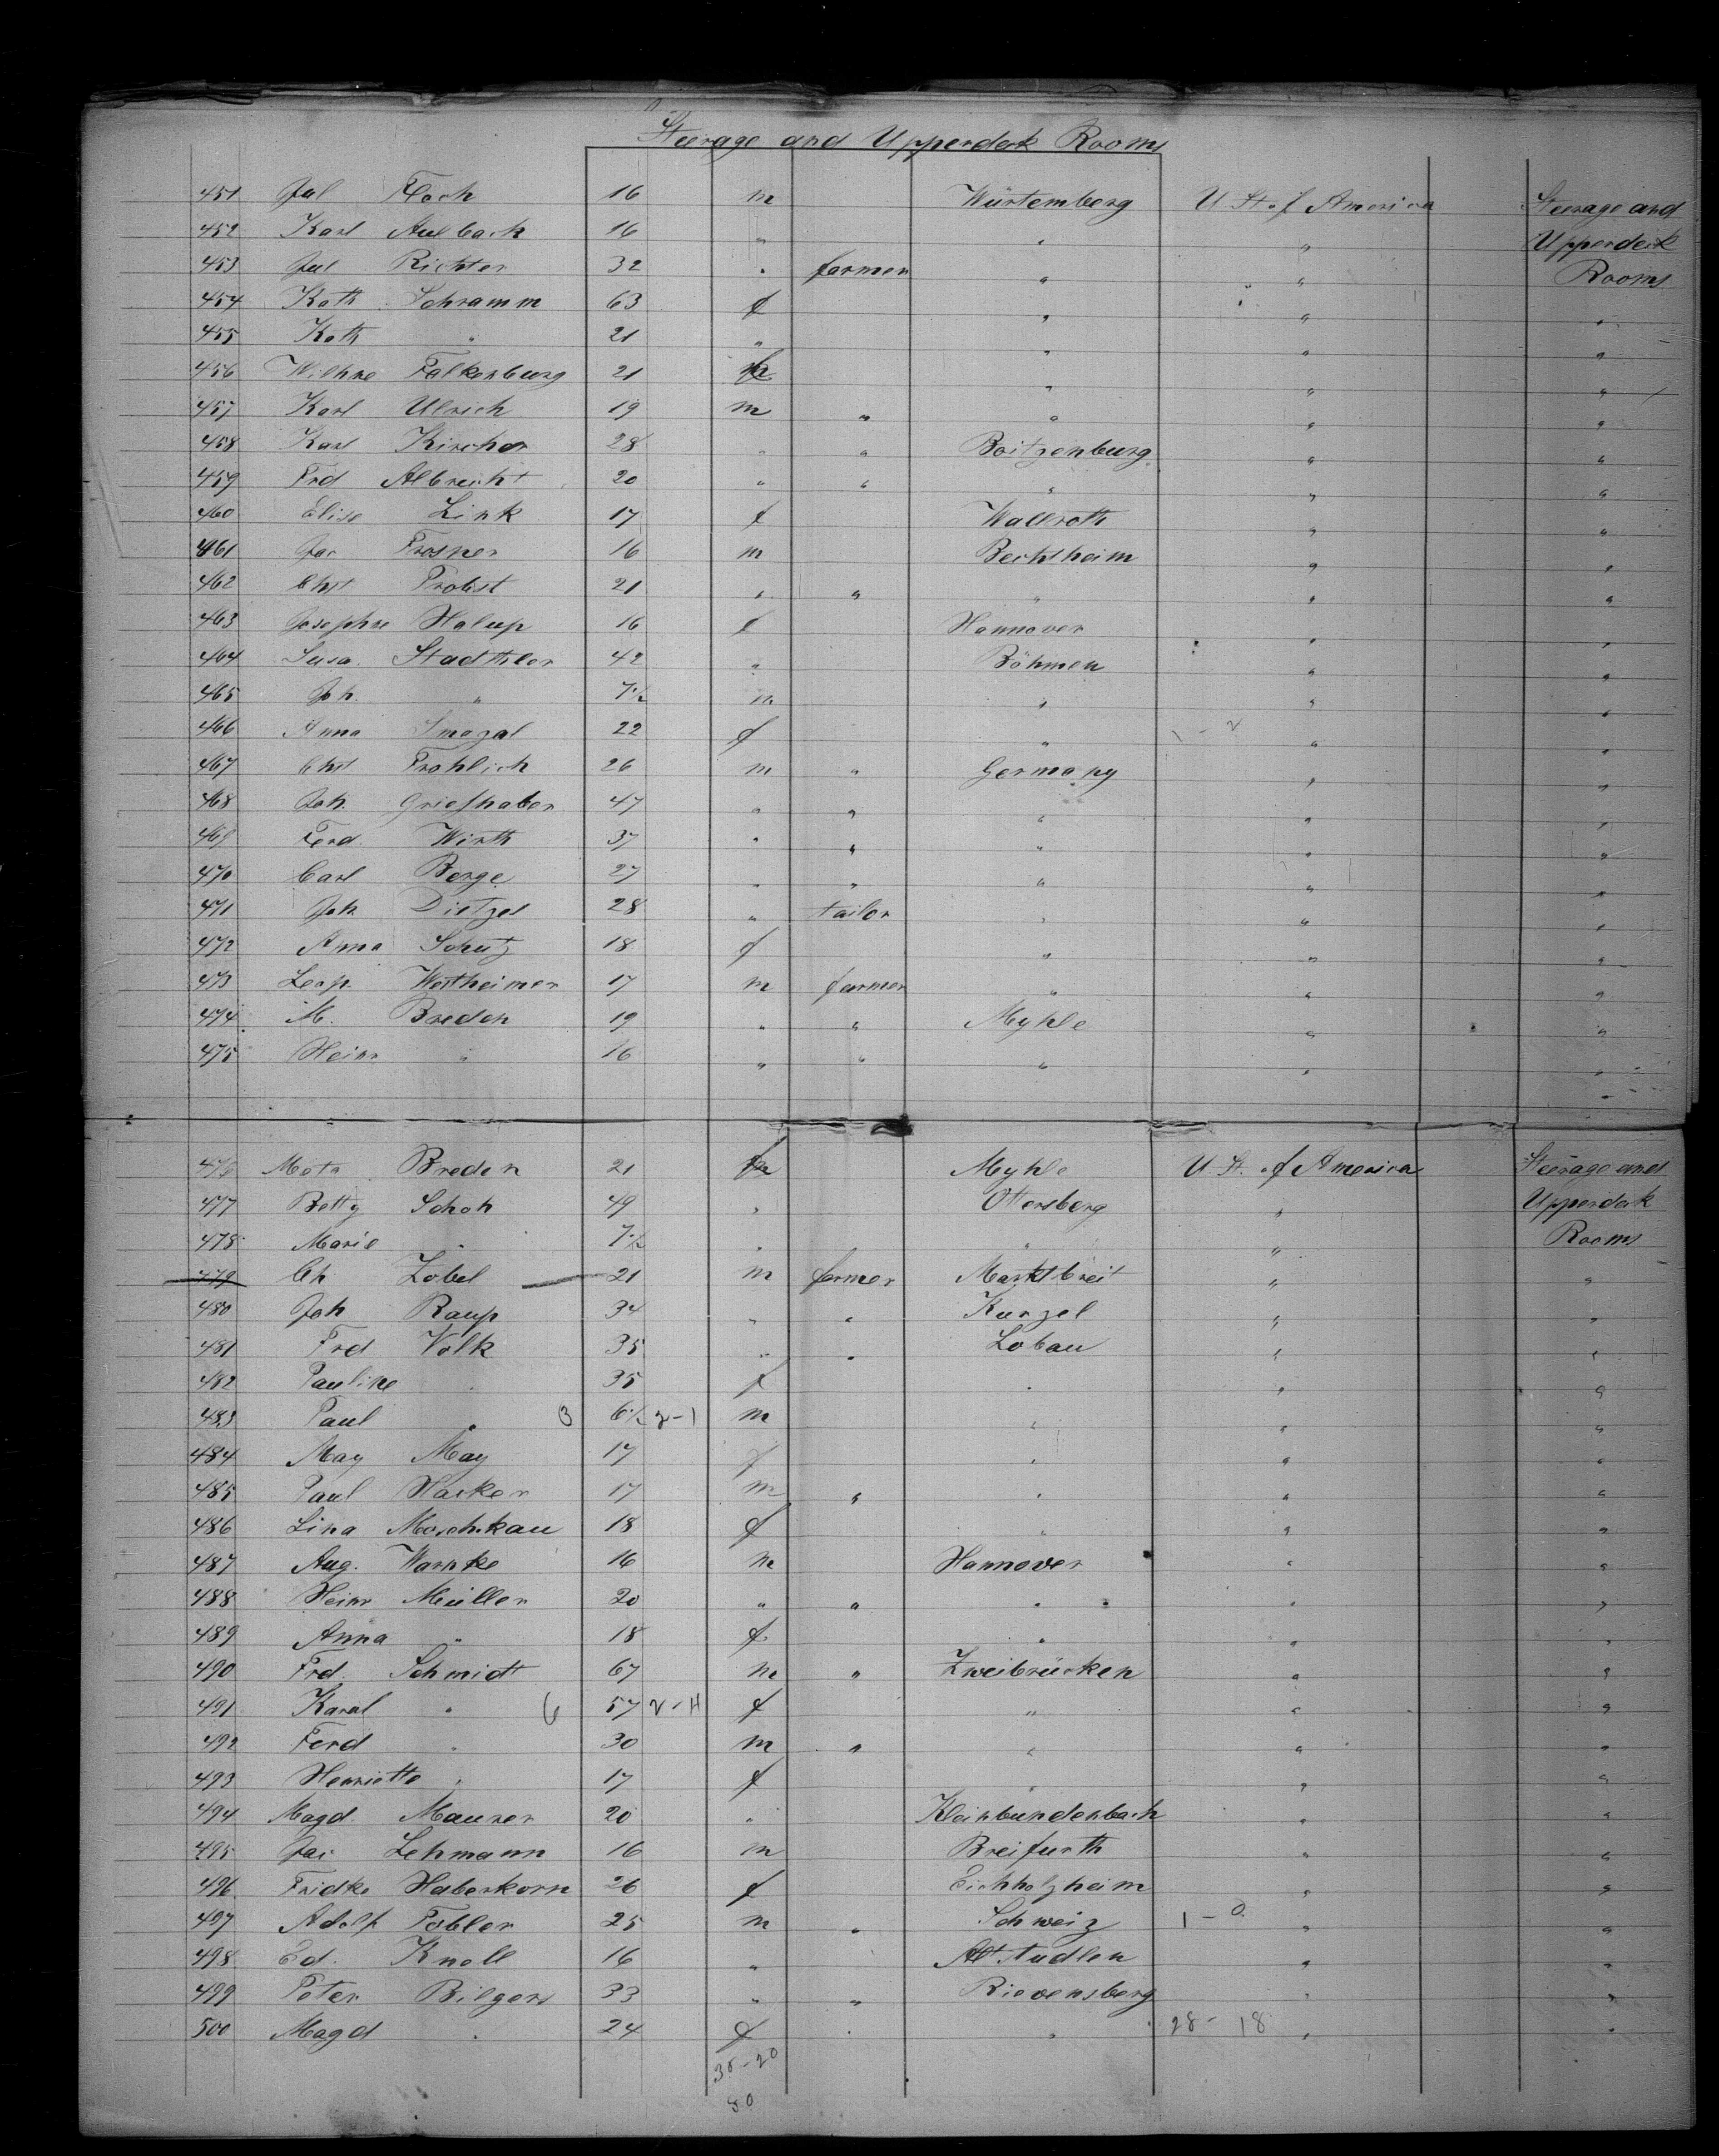 Steerage and Upperdeck Rooms
451 Jul Koch 16 m Würtemberg U St. of America Steerage and
452 Karl Aulbach 16 " " " Upperdeck
453 Jul Richter 32 " farmer " " Rooms
454 Kath Schramm 63 f " " "
455 Kath " 21 " " " "
456 Wilhne Falkenburg 21 f " " "
457 Karl Ulrich 19 m " " " "
458 Karl Kircher 28 " " Boitzenburg " "
459 Frd Albrecht 20 " " " " "
460 Elise Link 17 f Wallroth " "
461 Jac Frosner 16 m Bechtheim " "
462 Chst Probst 21 " " " " "
463 Josephne Halup 16 f Hannover " "
464 Susa. Stadthler 42 " Böhmen " "
465 Joh. " 7 1/2 m " " "
466 Anna Smezal 22 f " 1 - 2 " "
467 Chst Frohlich 26 m " Germany " "
468 Joh. Grieshaber 47 " " " " "
469 Ferd. Wirth 37 " " " " "
470 Carl Berge 27 " " " " "
471 Joh Dietzel 28 " tailor " " "
472 Anna Schutz 18 f " " "
473 Leop. Wertheimer 17 m farmer " " "
474 M. Breden 19 " " Myhle " "
475 Heinr " 16 " " " " "
476 Meta Breden 21 f Myhle U St. of America Steerage and
477 Betty Schoh 49 " Ottersberg " Upperdeck
478 Marie " 7 1/2 " " " Rooms
479 Ch Zobel 21 m farmer Marktbreit " "
480 Joh Raup 34 " " Kurzel " "
481 Frd Volk 35 " " Lobau " "
482 Pauline " 35 f " " "
483 Paul " 3 6 1/2 2-1 m " " "
484 May May 17 f " " "
485 Paul Hacker 17 m " " " "
486 Lina Moschkau 18 f " " "
487 Aug. Warnke 16 m Hannover " "
488 Heinr Müller 20 " " " " "
489 Anna " 18 f " " "
490 Frd. Schmidt 67 m " Zweibrücken " "
491 Karol " 6 57 2-4 f " " "
492 Ferd " 30 m " " " "
493 Henriette " 17 f " " "
494 Magd. Maurer 20 " Kleinbundenbach " "
495 Jac Lehmann 16 m Breifurth " "
496 Fridke Haberkorn 26 f Eichholzheim " "
497 Adolf Tobler 25 m " Schweiz 1 - 0 " "
498 Ed. Knoll 16 " Altstudlen " "
499 Peter Bilger 33 " " Rievensberg " "
500 Magd " 24 f " 28 - 18 " "
30-20
50